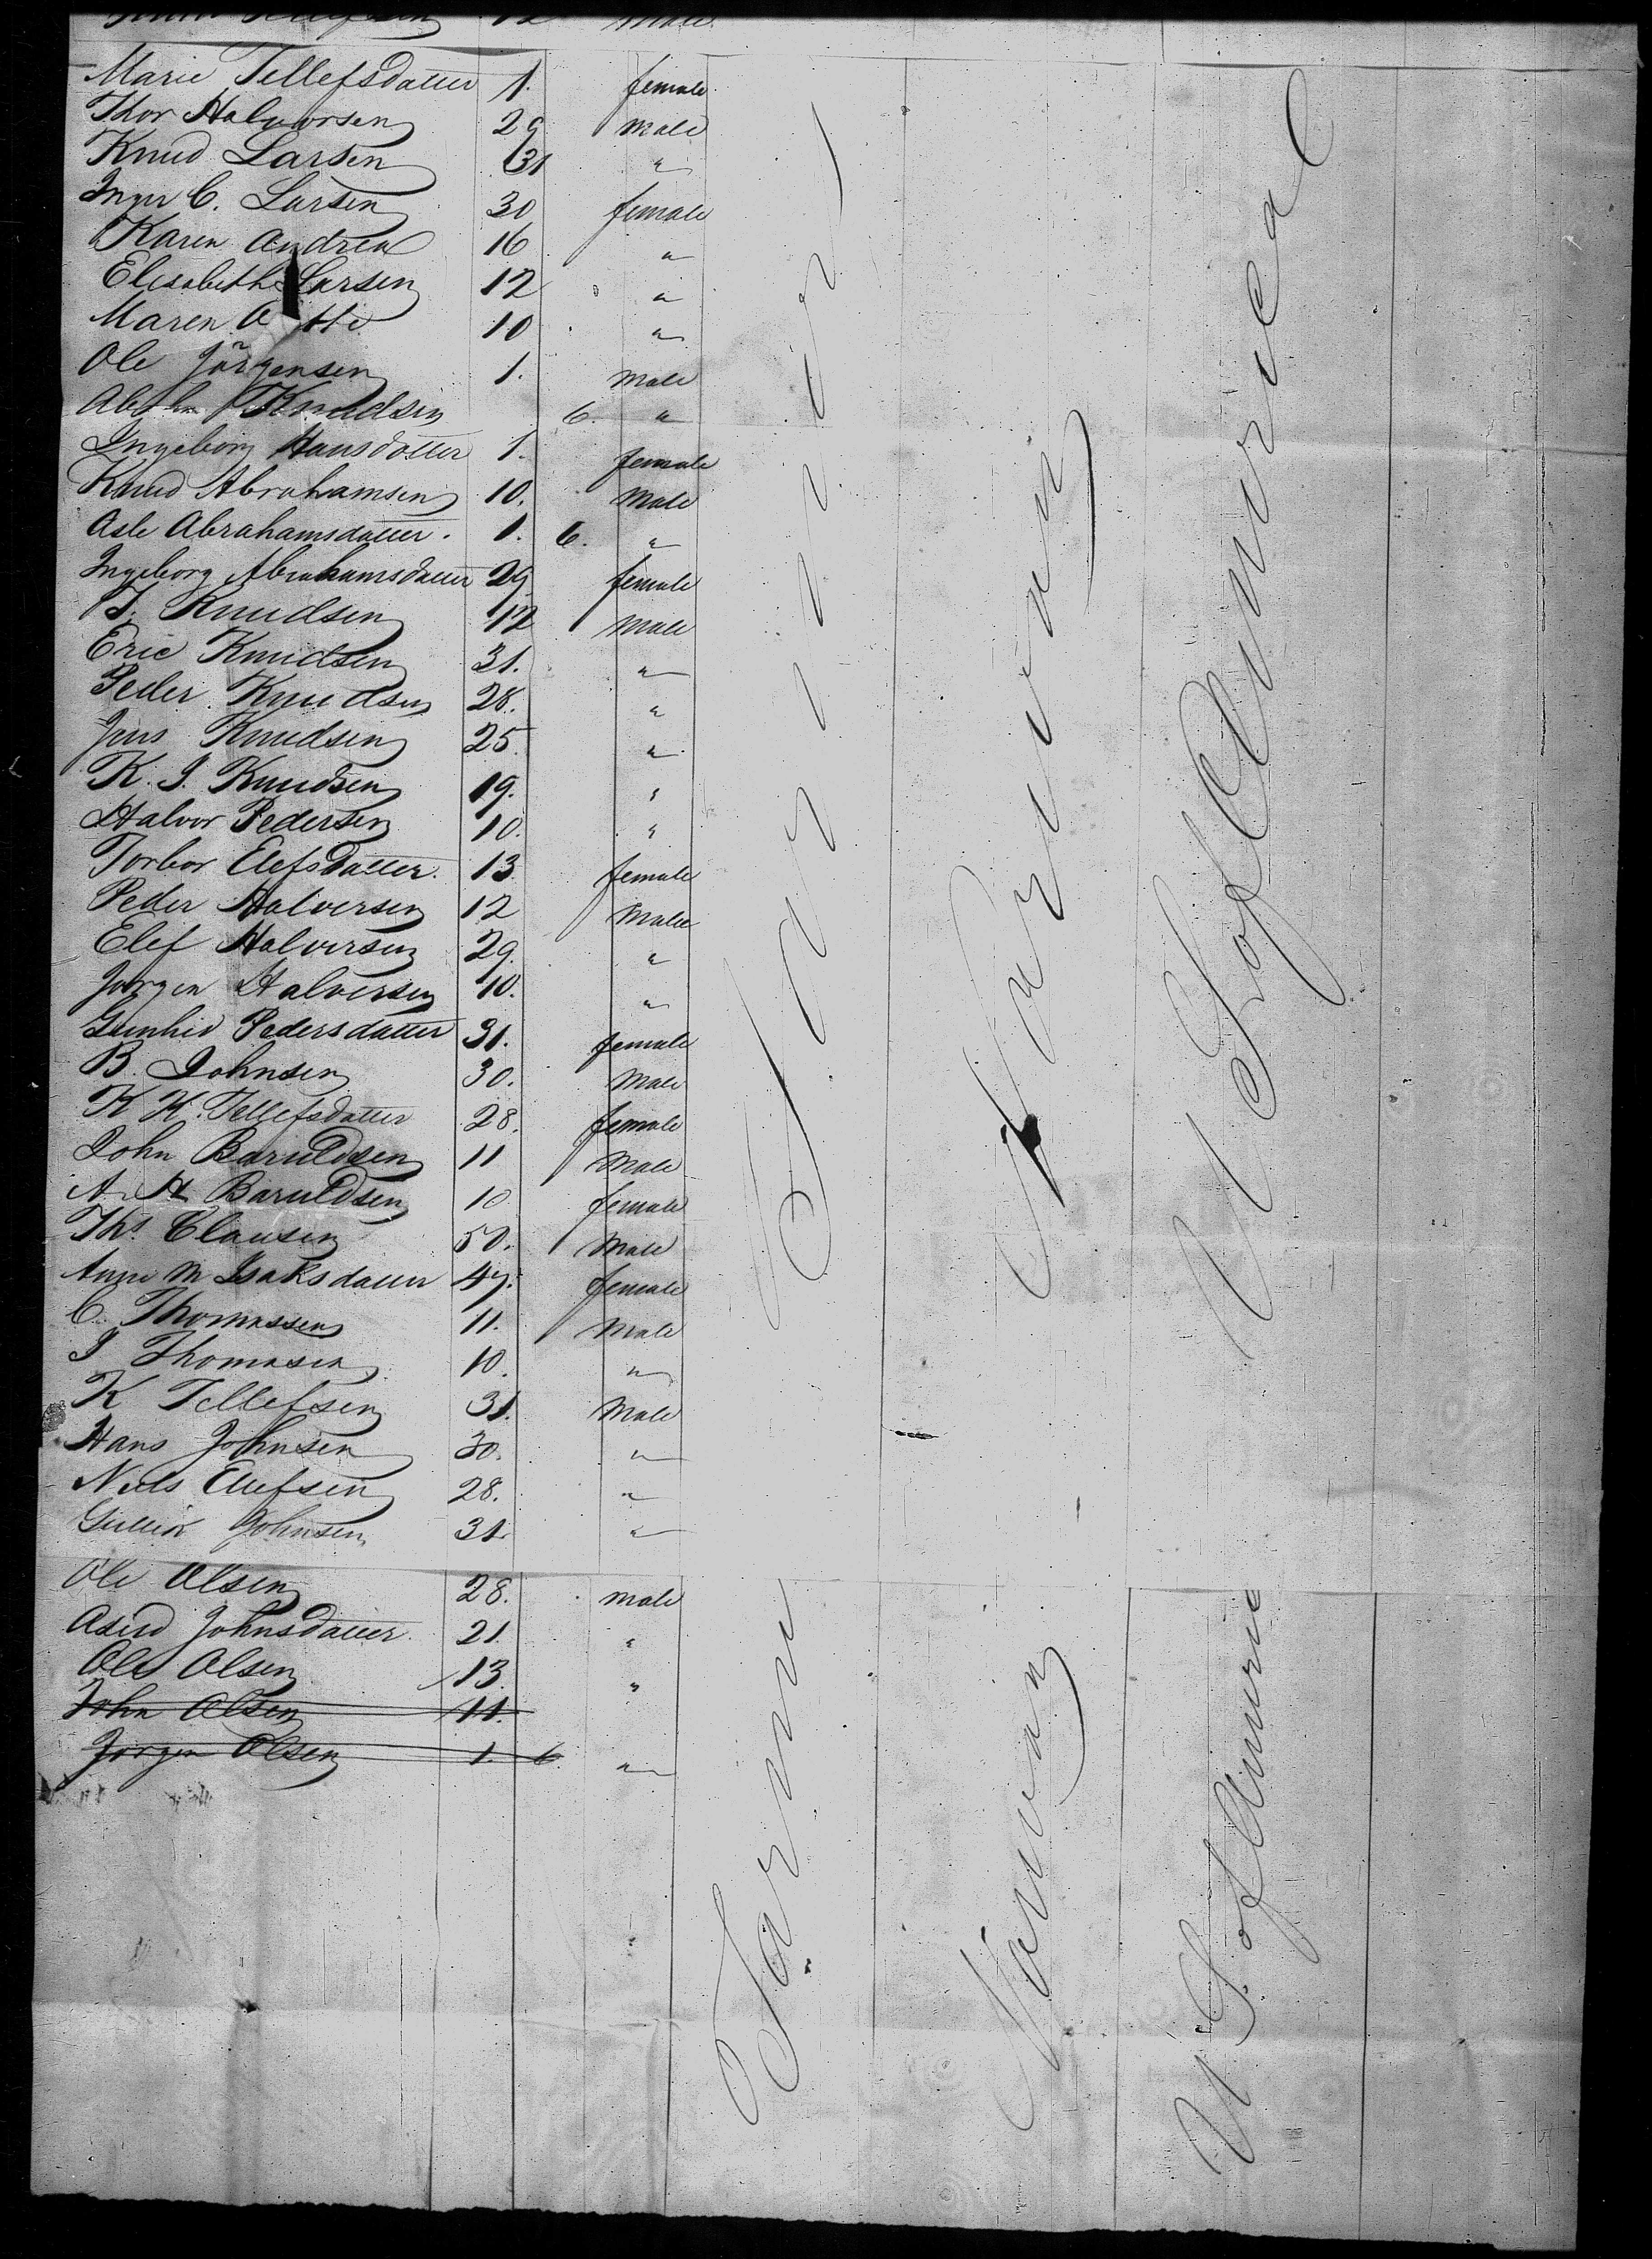 12 Male
Marie Tellefsdatter 1. female
Thor Halvorsen 29 Male
Knud Larsen 31 "
Inger C. Larsen 30 female
Karen Andrea 16 "
Elisabeth Larsen 12 "
Maren 10 "
Ole Jörgensen 1. Male
Knudsen 6. "
Ingeborg Hansdatter 1. female
Knud Abrahamsen 10. Male
Asle Abrahamsdatter. 1. 6. "
Ingeborg Abrahamsdatter 29 female
T. Knudsen 12 Male
Eric Knudsen 31. "
Peder Knudsen 28. "
Jens Knudsen 25. "
K. J. Knudsen 19. "
Halvor Pedersen 10. "
Torbor Elefsdatter. 13. female
Peder Halversen 12 Male
Elef Halversen 29. "
Jorgen Halversen 10. "
Gunhid Pedersdatter 31. female
B. Johnsen 30. Male
K K. Tellefsdatter 28. female
John Baruldsen 11 Male
A. H Baruldsen 10 female
Ths Clausen 50. Male
Anne M Isaksdatter 47. female
C. Thomassen 11. Male
J Thomasen 10. "
K Tellefsen 31. Male
Hans Johnsen 30. "
Niels Ellefsen 28. "
Gullik Johnsen 31. "
Ole Olsen 28. male
Asird Johnsdatter. 21. "
Ole Olsen 13. "
John Olsen 11.
Jorgen Olsen 1. 6. "
Farmers
Norwan
U S of America
Farme
Norwan
U S of Americ